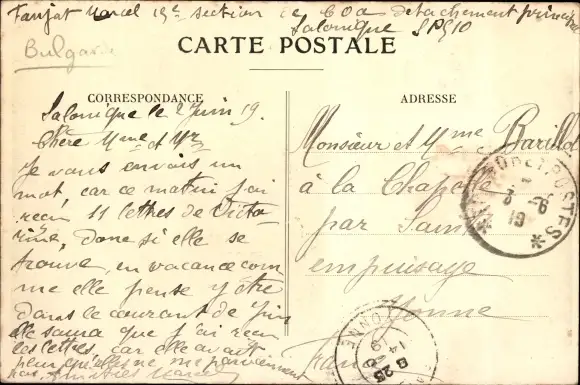 Fanjat Marcel 19e section de COA detachement principal
Salonique SP510
Bulgarie
CARTE POSTALE
CORRESPONDANCE
Salonique le 2 Juin 19.
Chère Mme et Mr
Je vous envois un
mot, car ce matin j'ai
reçu 11 lettres de Victo
rine, donc si elle se
trouve, en vacance com
me elle pense y être
dans le courant de Juin
elle saura que j'ai reçu
les lettres, car elle avait
peur qu'elles ne me parviennent
pas. Marcel
ADRESSE
Monsieur et Mme Barillot
à la Chapelle
par Saint
en puisaye
Yonne
France
POSTES
3 - 6
19
YONNE